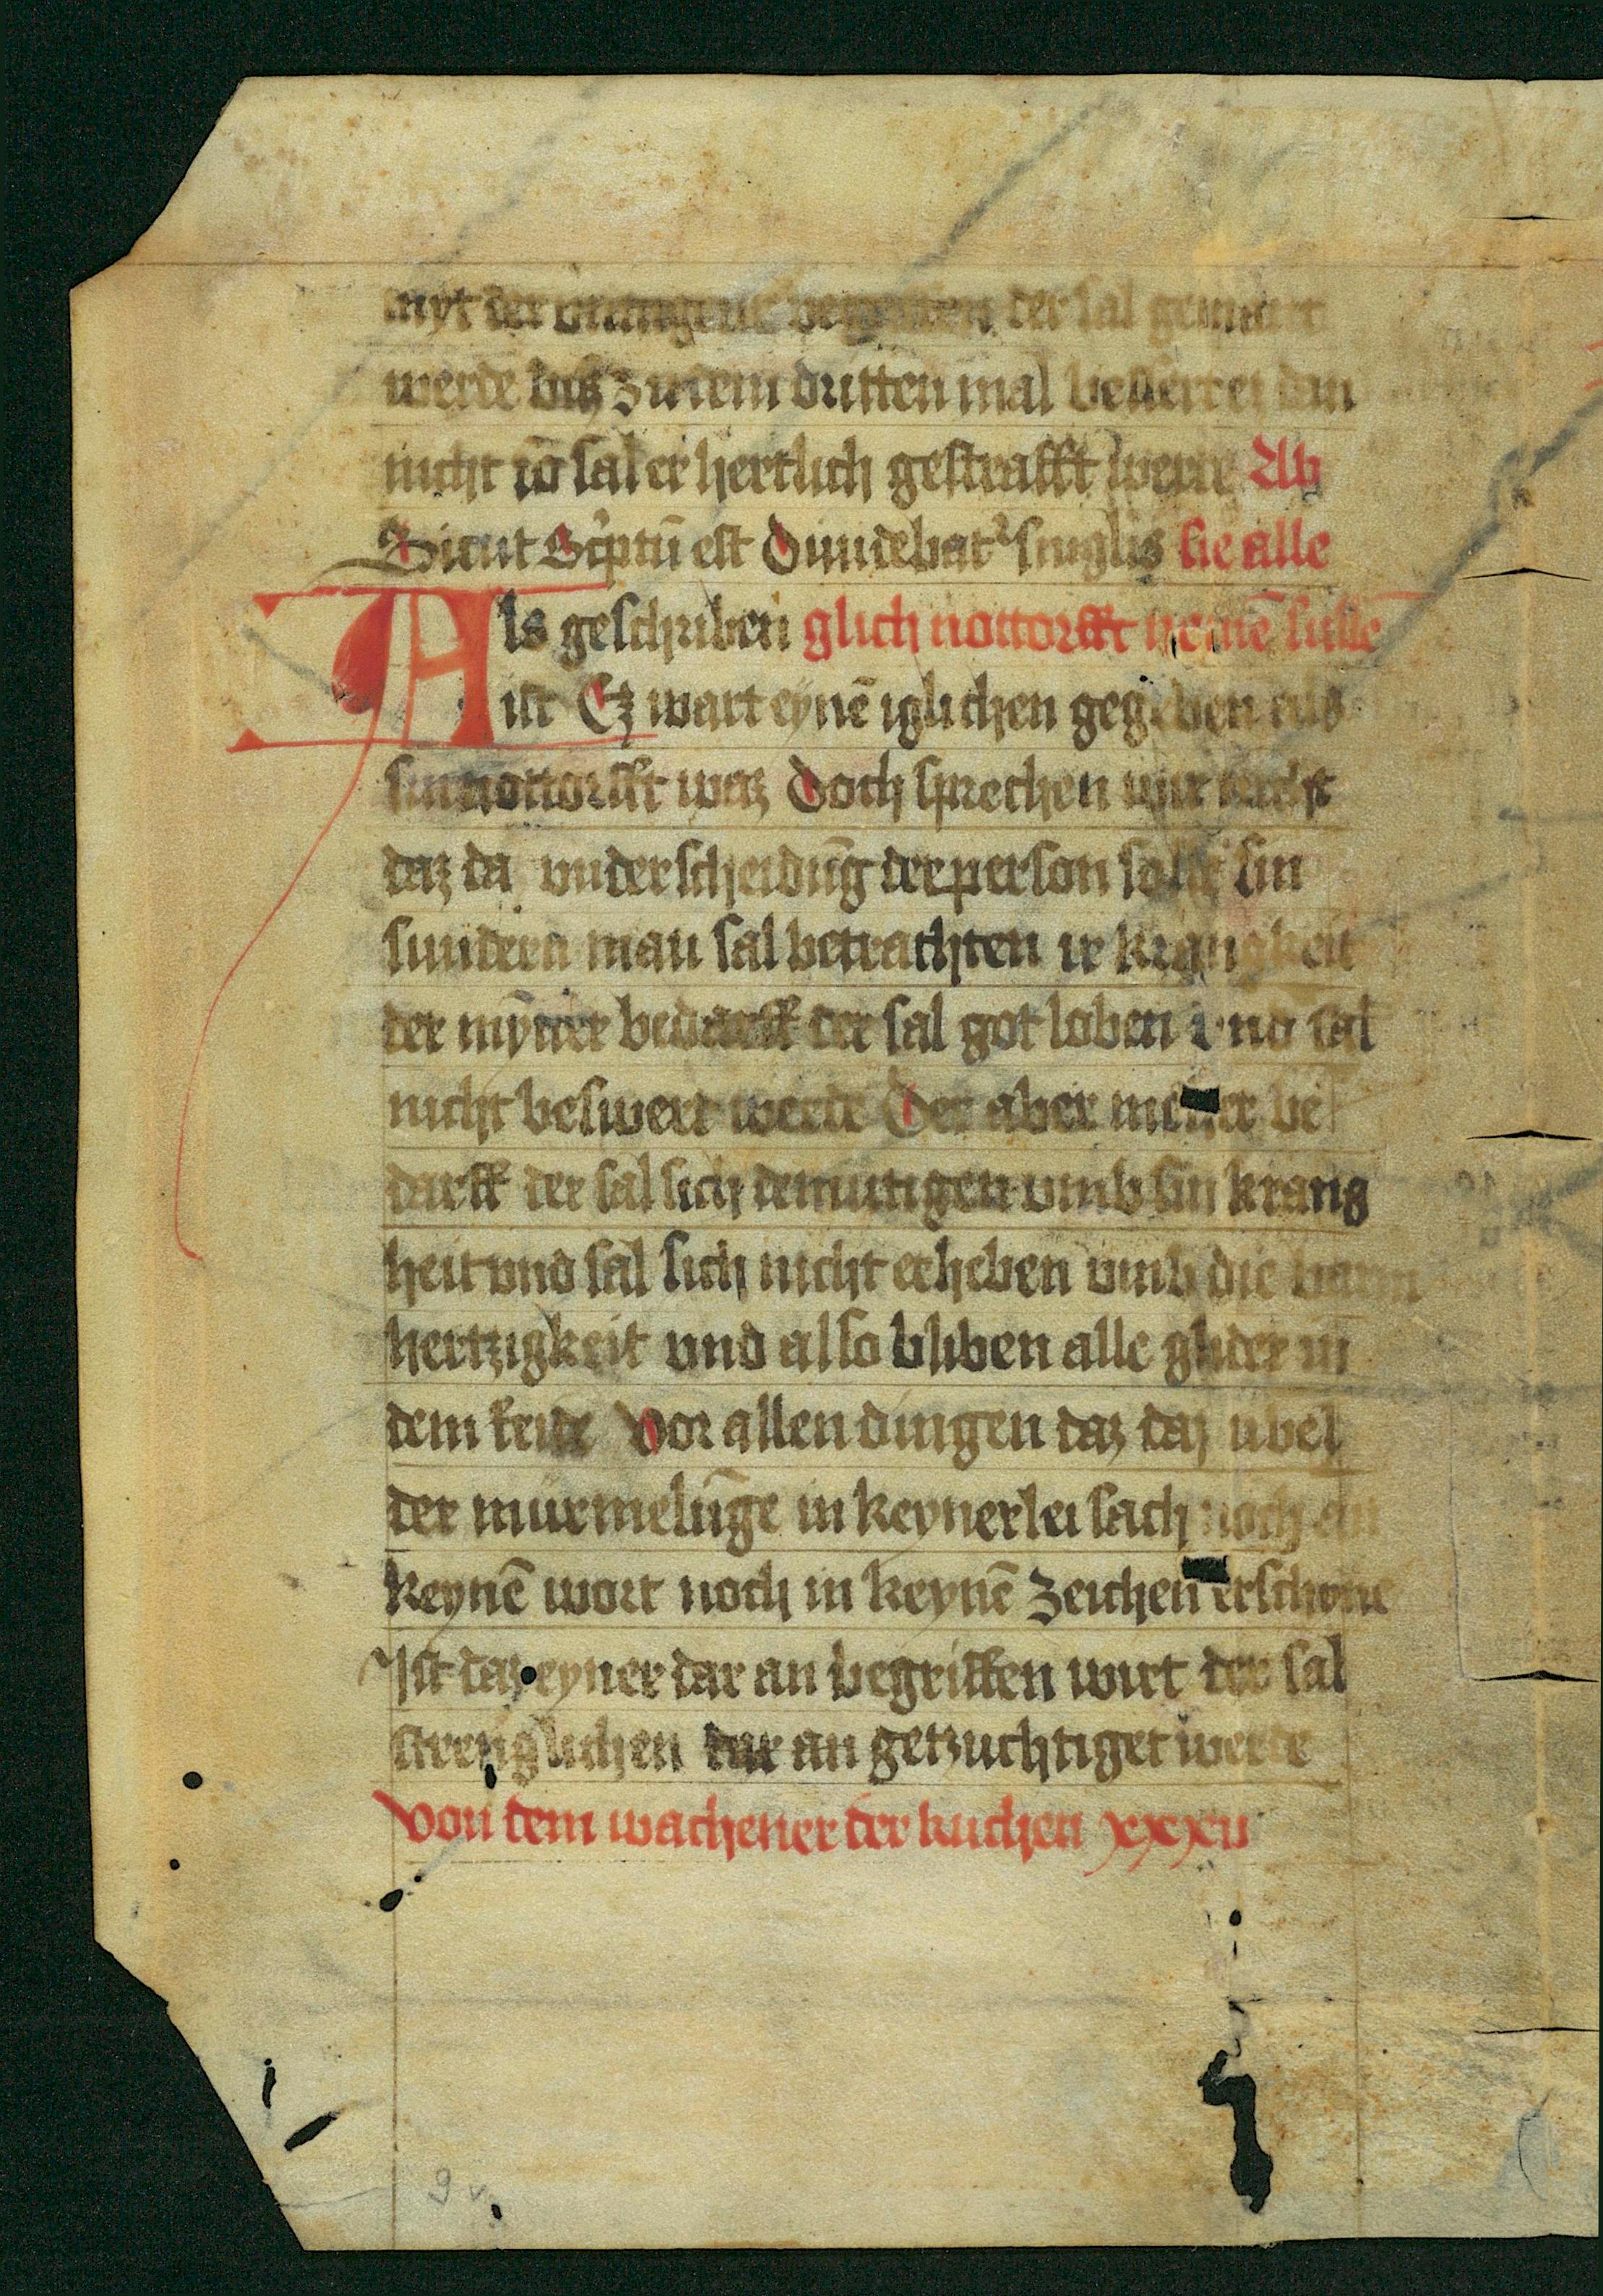 myt der der sal gemant
werde bisz zu dem dritten mal bessert er dan
nicht so sal er hertlich gestrafft werde Ab
Sicut Scptū est Diuidebat͛ singlis sie alle
Als geschriben glich nottorfft nemē sulle
ist Ez wart eynē iglichen gegeben als
sin nottorfft waz Doch sprechen wir nicht
daz da vnderscheidūg der person solle sin
sundern man sal betrachten ir krangkeit
der mynner bedarff der sal got loben vnd sal
nicht beswert werde Der aber me be
darff der sal sich demutigen vmb sin krang
heit vnd sal sich nicht erheben vmb die barm
hertzigkeit vnd also bliben alle glider in
dem fride Vor allen dingen daz daz ubel
der murmelūge in keynerlei sach noch en
keynē wort noch in keynē zeichen erschyne
Ist daz eyner dar an begriffen wirt der sal
strenglichen dar an getzuchtiget werde
Von dem wachener der kuchen xxxu
9 v.